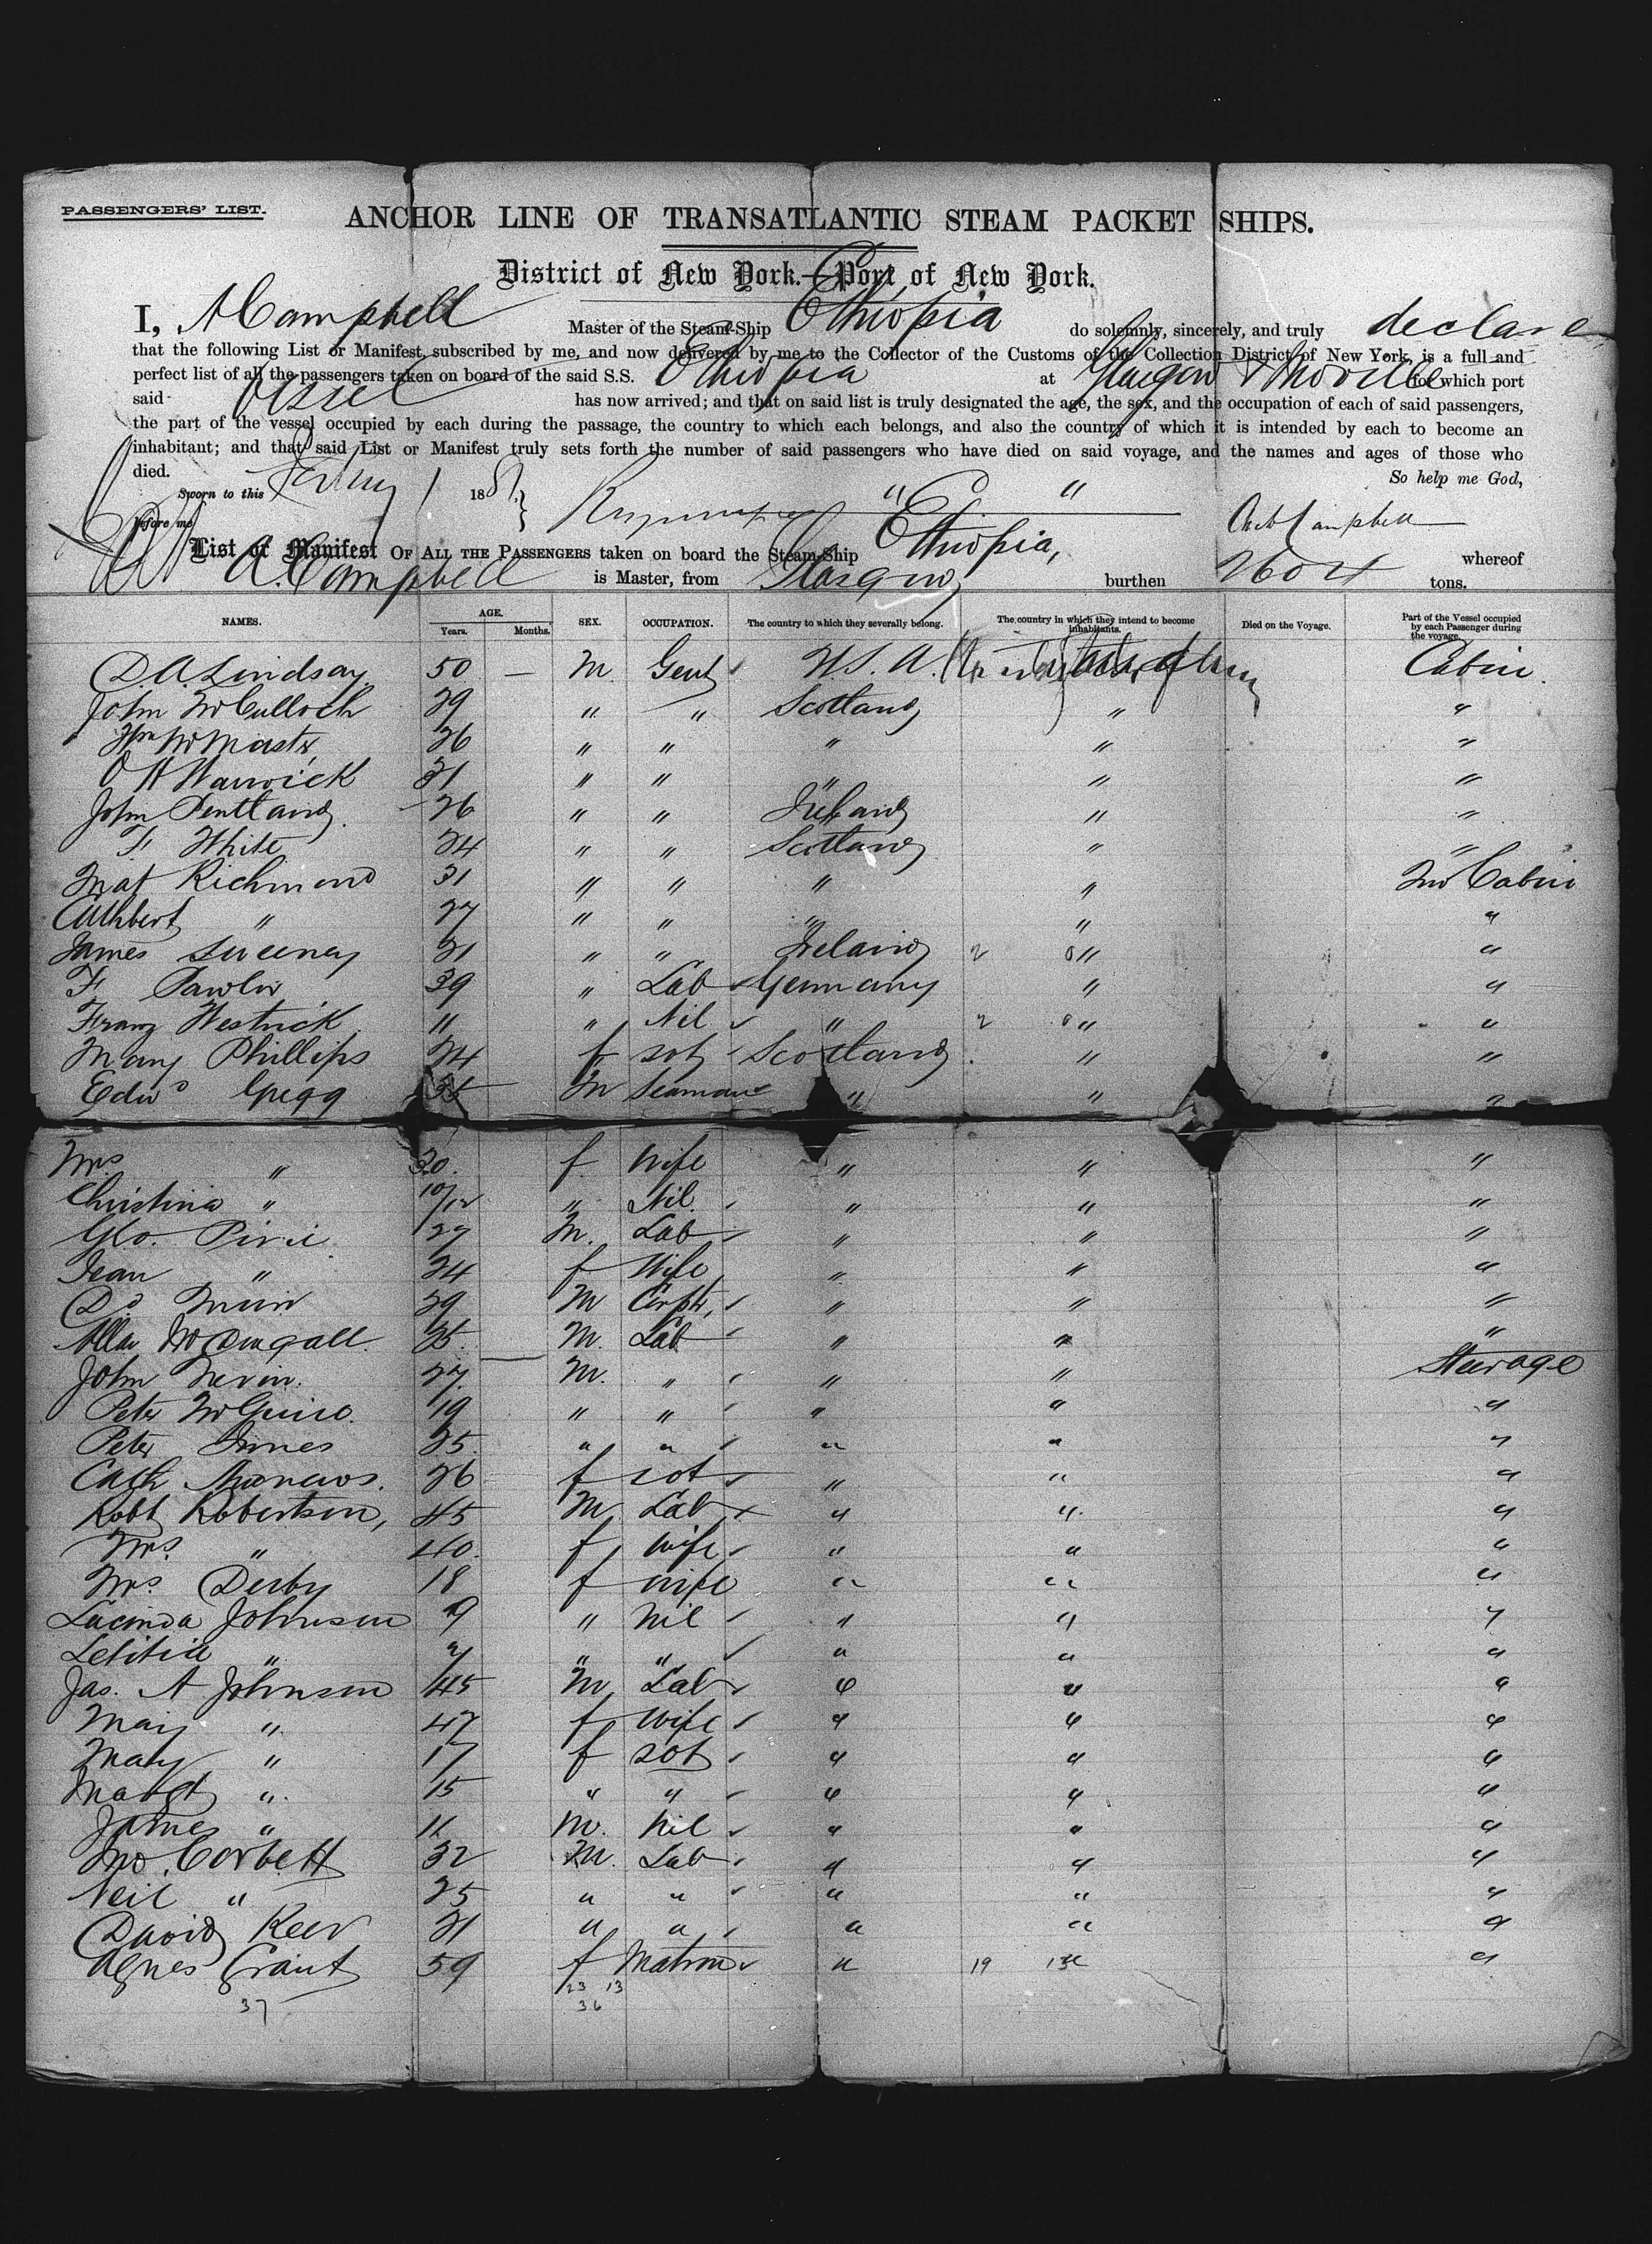 PASSENGERS' LIST.
ANCHOR LINE OF TRANSATLANTIC STEAM PACKET SHIPS.
District of New York.—Port of New York.
I, A Campbell Master of the Steam-Ship Ethiopia do solemnly, sincerely, and truly declare
that the following List or Manifest, subscribed by me, and now delivered by me to the Collector of the Customs of the Collection District of New York, is a full and
perfect list of all the passengers taken on board of the said S.S. Ethiopia at Glasgow & Moville for which port
said Vessel has now arrived; and that on said list is truly designated the age, the sex, and the occupation of each of said passengers,
the part of the vessel occupied by each during the passage, the country to which each belongs, and also the country of which it is intended by each to become an
inhabitant; and that said List or Manifest truly sets forth the number of said passengers who have died on said voyage, and the names and ages of those who
died. So help me God,
Sworn to this 1 188
before me Arch Campbell
List or Manifest OF ALL THE PASSENGERS taken on board the Steam-Ship Ethiopia, whereof
A. Campbell is Master, from Glasgow burthen 2604 tons.
NAMES. AGE. Years. Months. SEX. OCCUPATION. The country to which they severally belong. The country in which they intend to become inhabitants. Died on the Voyage. Part of the Vessel occupied by each Passenger during the voyage.
D. A. Lindsay 50 — M Gent U.S.A. Cabin.
John McCulloch 29 " " Scotland " "
Wm McMaster 26 " " " " "
O H Warwick 31 " " " " "
John Pentland 26 " " Ireland " "
F White 24 " " Scotland " "
Mat Richmond 31 " " " " Cabin
Cuthbert " 27 " " " " "
James Sweeney 21 " " Ireland 2 0 " "
F 39 " Lab Germany " "
Franz Westrick 11 " Nil " 2 0 " "
Mary Phillips 24 f Scotland " "
Edwd Gregg 35 — M Seaman " " "
Mrs " 30 f Wife " " "
Christina " 10/12 " Nil " " "
Geo. Pirie 27 M. Lab " " "
Jean " 24 f Wife " " "
Dd Muir 29 M Carptr " " "
Allan McDougall 25 — M. Lab " " "
John Nevin 27 M. " " " Steerage
Peter McGuire 19 " " " " "
Peter Innes 25 " " " " "
Cath Andrews 26 f " " "
Robt Robertson, 45 M Lab " " "
Mrs " 40 f wife " " "
Mrs Derby 18 f wife " " "
Lucinda Johnson 9 " Nil " " "
Letitia " 7 " " " " "
Jas. A Johnson 45 M Lab " " "
Mary " 47 f wife " " "
Mary " 17 f " " "
Margt " 15 " " " " "
James " 11 M. Nil " " "
Jno. Corbett 32 M. Lab " " "
Neil " 25 " " " " "
David Keer 21 " " " " "
Agnes Grant 59 f Matron " 19 13 " "
37 23 13
36